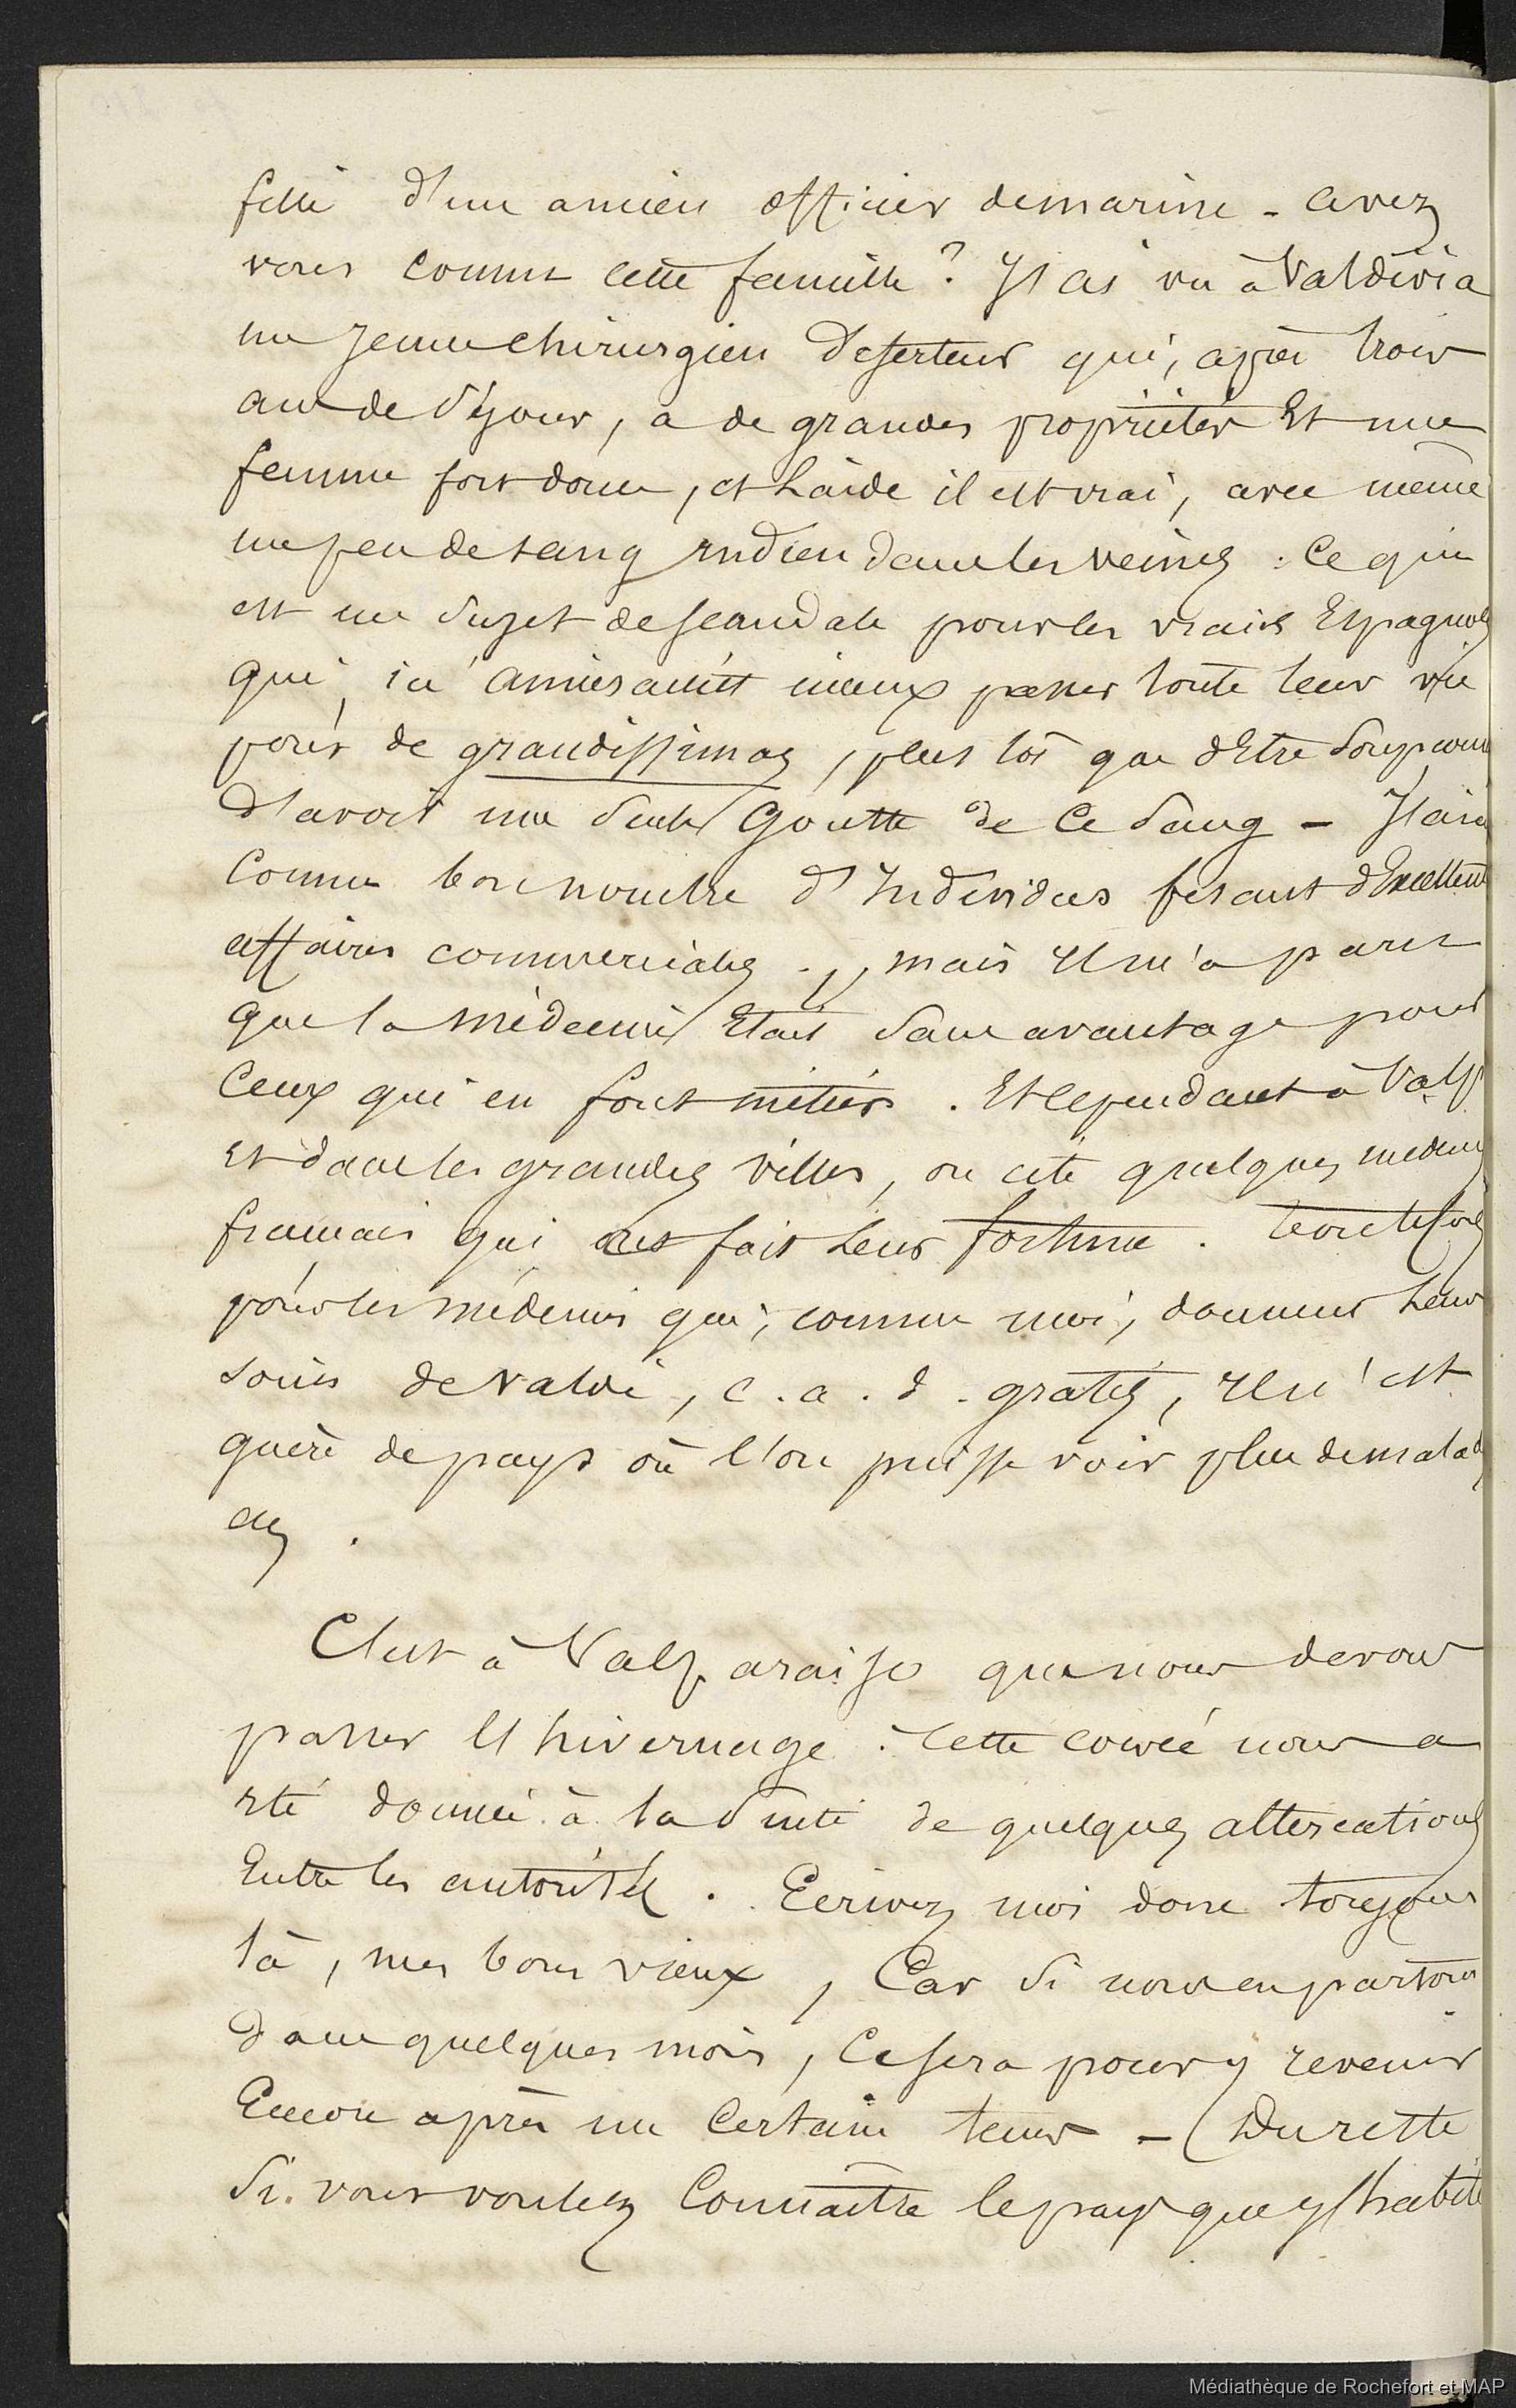 fille d'un ancien officier de marine - avez
vous connu cette famille? J'ai vu à Valdivia
un jeune chirurgien déserteur qui, après trois
ans de séjour, a de grandes propriétés Et une
femme fort douce, et laide il est vrai, avec même
un peu de sang indien dans les veines : Ce qui
est un sujet de scandale pour les vrais Espagnols
qui, ici aimeraient mieux passer toute leur vie
pour de grandissimas, plus tôt que d'Etre Soupçon
d'avoir une Seule Goutte de ce Sang - J'ai
Connu bon nombre d'Individus fesant d'Excellent
affaires commerciales ., mais il m'a paru
que la médecine Etait Sans avantage pour
Ceux qui en font métier. Et cependant à Valp.
Et dans les grandes villes, on cite quelques médecins
français qui ont fait leur fortune. toutefois
pour les médecins qui, comme moi, donnent leurs
soins de valde, c.a.d. gratis, il n'est
guère de pays où l'on puisse voir plus de mala
des.
C'est à Valparaiso que nous devons
passer l'hivernage. Cette corvée nous a
été donnée à la Suite de quelques altercations
Entre les autorités. Ecrivez moi donc toujours
là, mes bons vieux, Car Si nous en partons
dans quelques mois, Ce sera pour y revenir
Encore après un Certain tems - (Du reste
Si vous voulez Connaître le pays que j'habite
Médiathèque de Rochefort et MAP